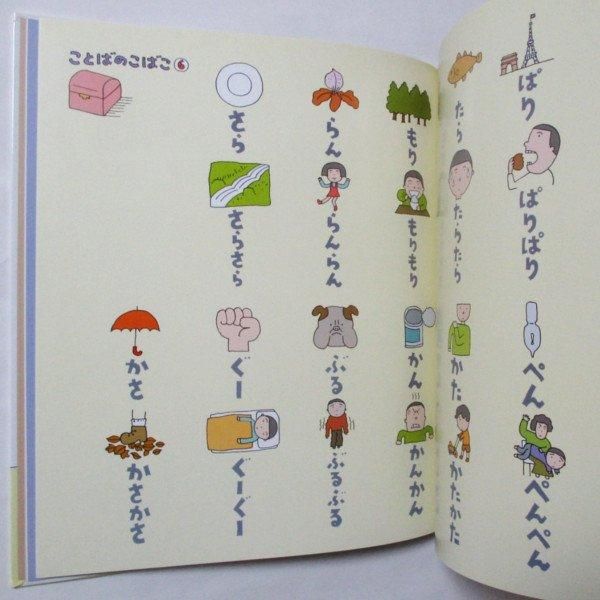 ことばのこばこ 6
ぱり
ぱりぱり
たら
たらたら
もり
もりもり
らん
らんらん
さら
さらさら
ぺん
ぺんぺん
かた
かたかた
かん
かんかん
ぶる
ぶるぶる
ぐー
ぐーぐー
かさ
かさかさ